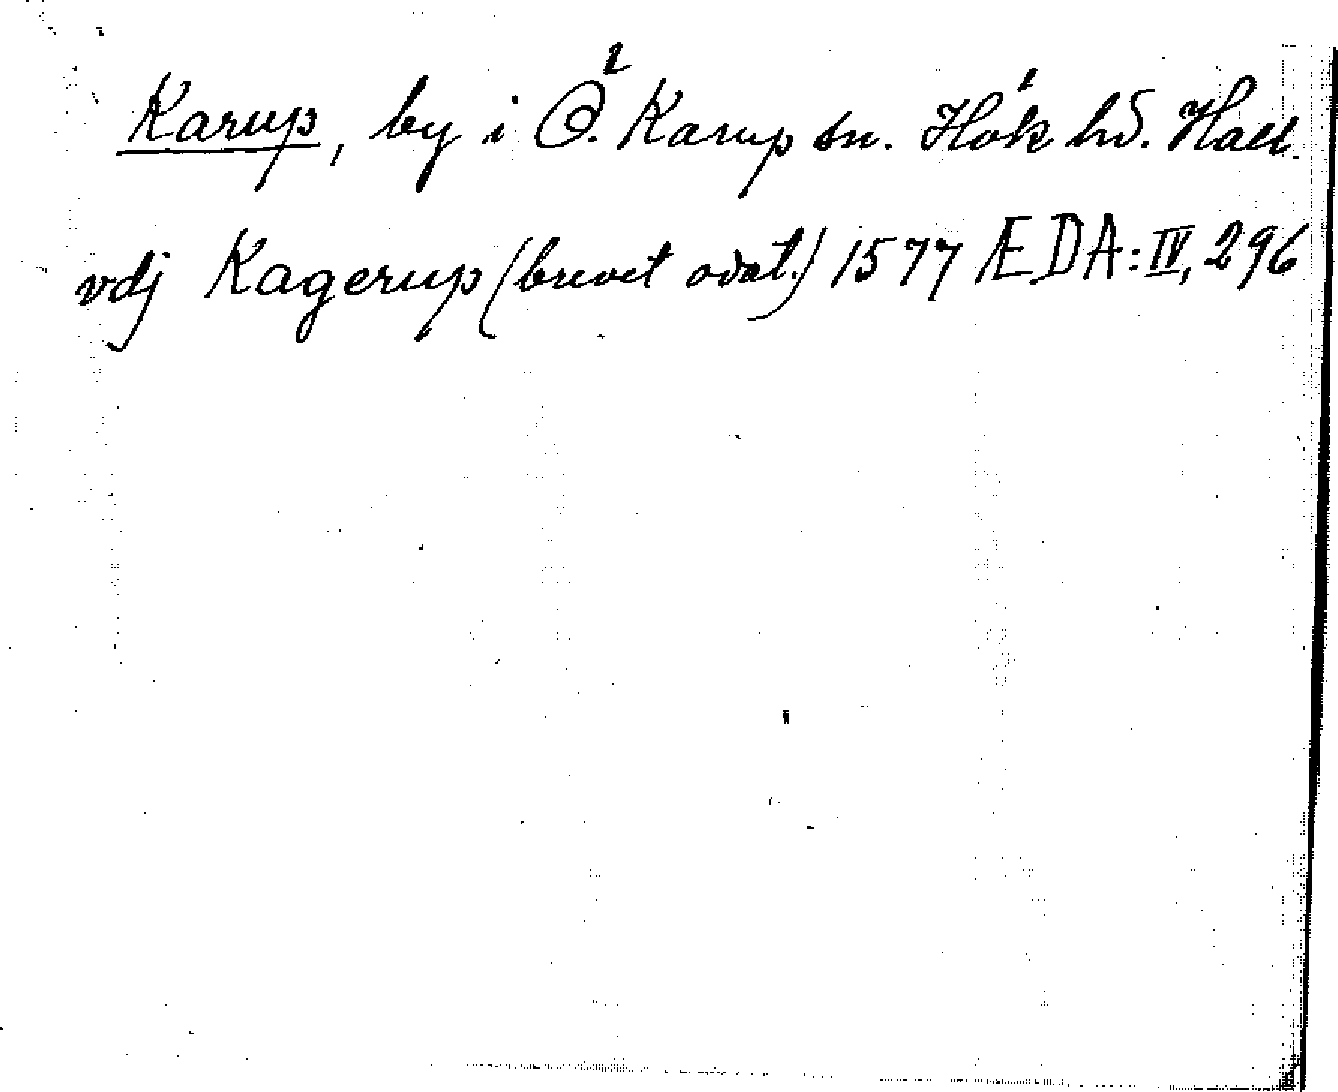 Karup, by i Ö. Karup sn. Hök hd. Hall.
vdj Kagerup (brevet odat.) 1577 ÆDA: IV, 296